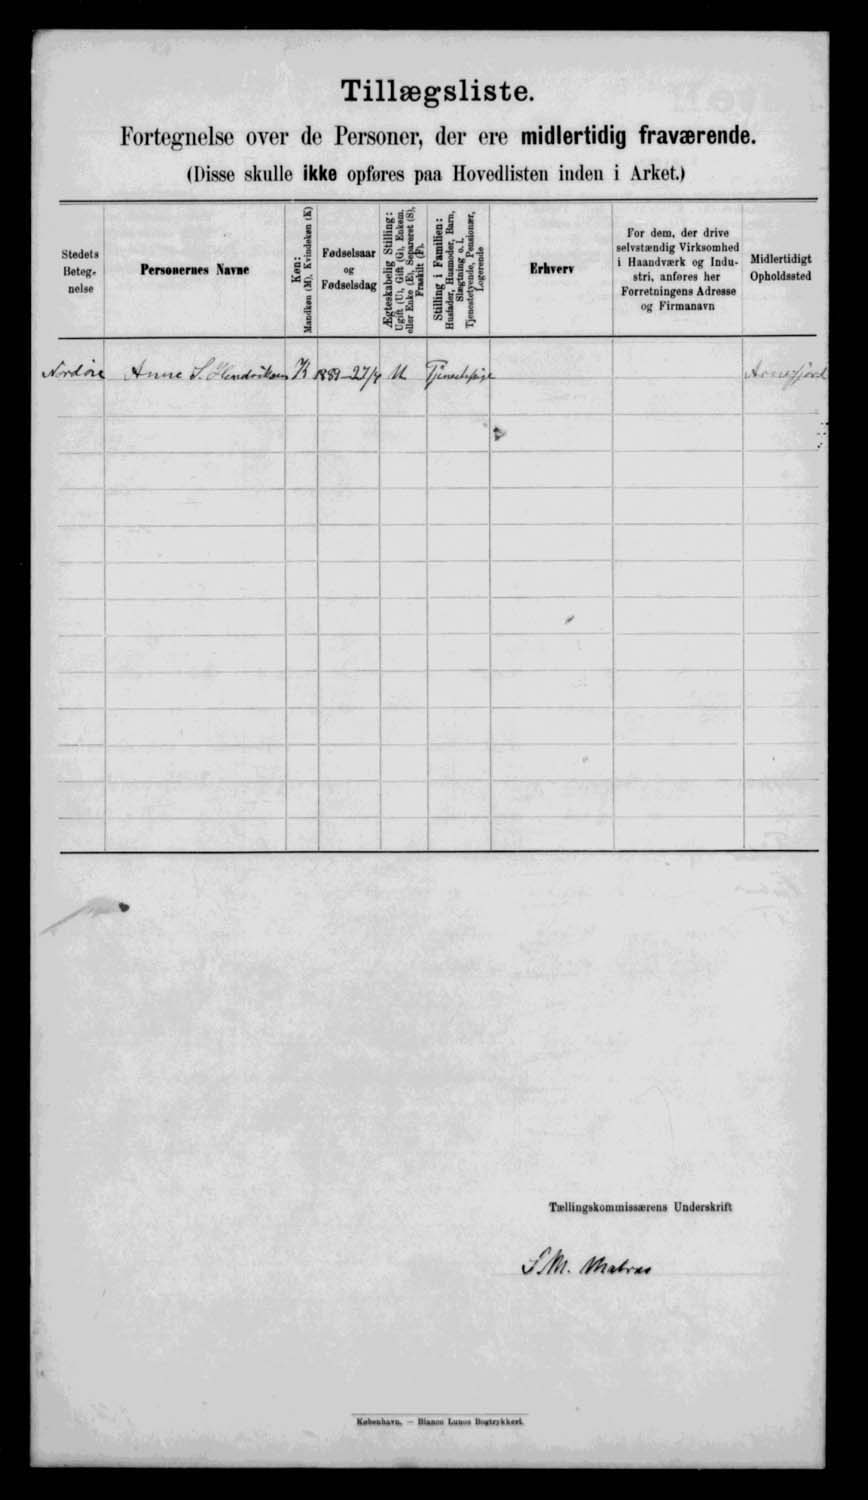 Tillægsliste.
Fortegnelse over de Personer, der ere midlertidig fraværende.
(Disse skulle ikke opføres paa Hovedlisten inden i Arket.)
Stedets
Beteg-
nelse
Personernes Navne
Køn:
Mandkøn (M), Kvindekøn (K)
Fødselsaar
og
Fødselsdag
Ægteskabelig Stilling:
Ugift (U), Gift (G), Enkem.
eller Enke (E), Separeret (S),
Fraskilt (F).
Stilling i Familien:
Husfader, Husmoder, Barn,
Slægtning o. l.
Tjenestetyende, Pensionær,
Logerende
Erhverv
For dem, der drive
selvstændig Virksomhed
i Haandværk og Indu-
stri, anføres her
Forretningens Adresse
og Firmanavn
Midlertidigt
Opholdssted
Nordöre Anne S. Hendriksen K 27/4 U Tjenestepige Arnefjord
Tællingskommissærens Underskrift
Matras
København. — Bianco Lunos Bogtrykkeri.